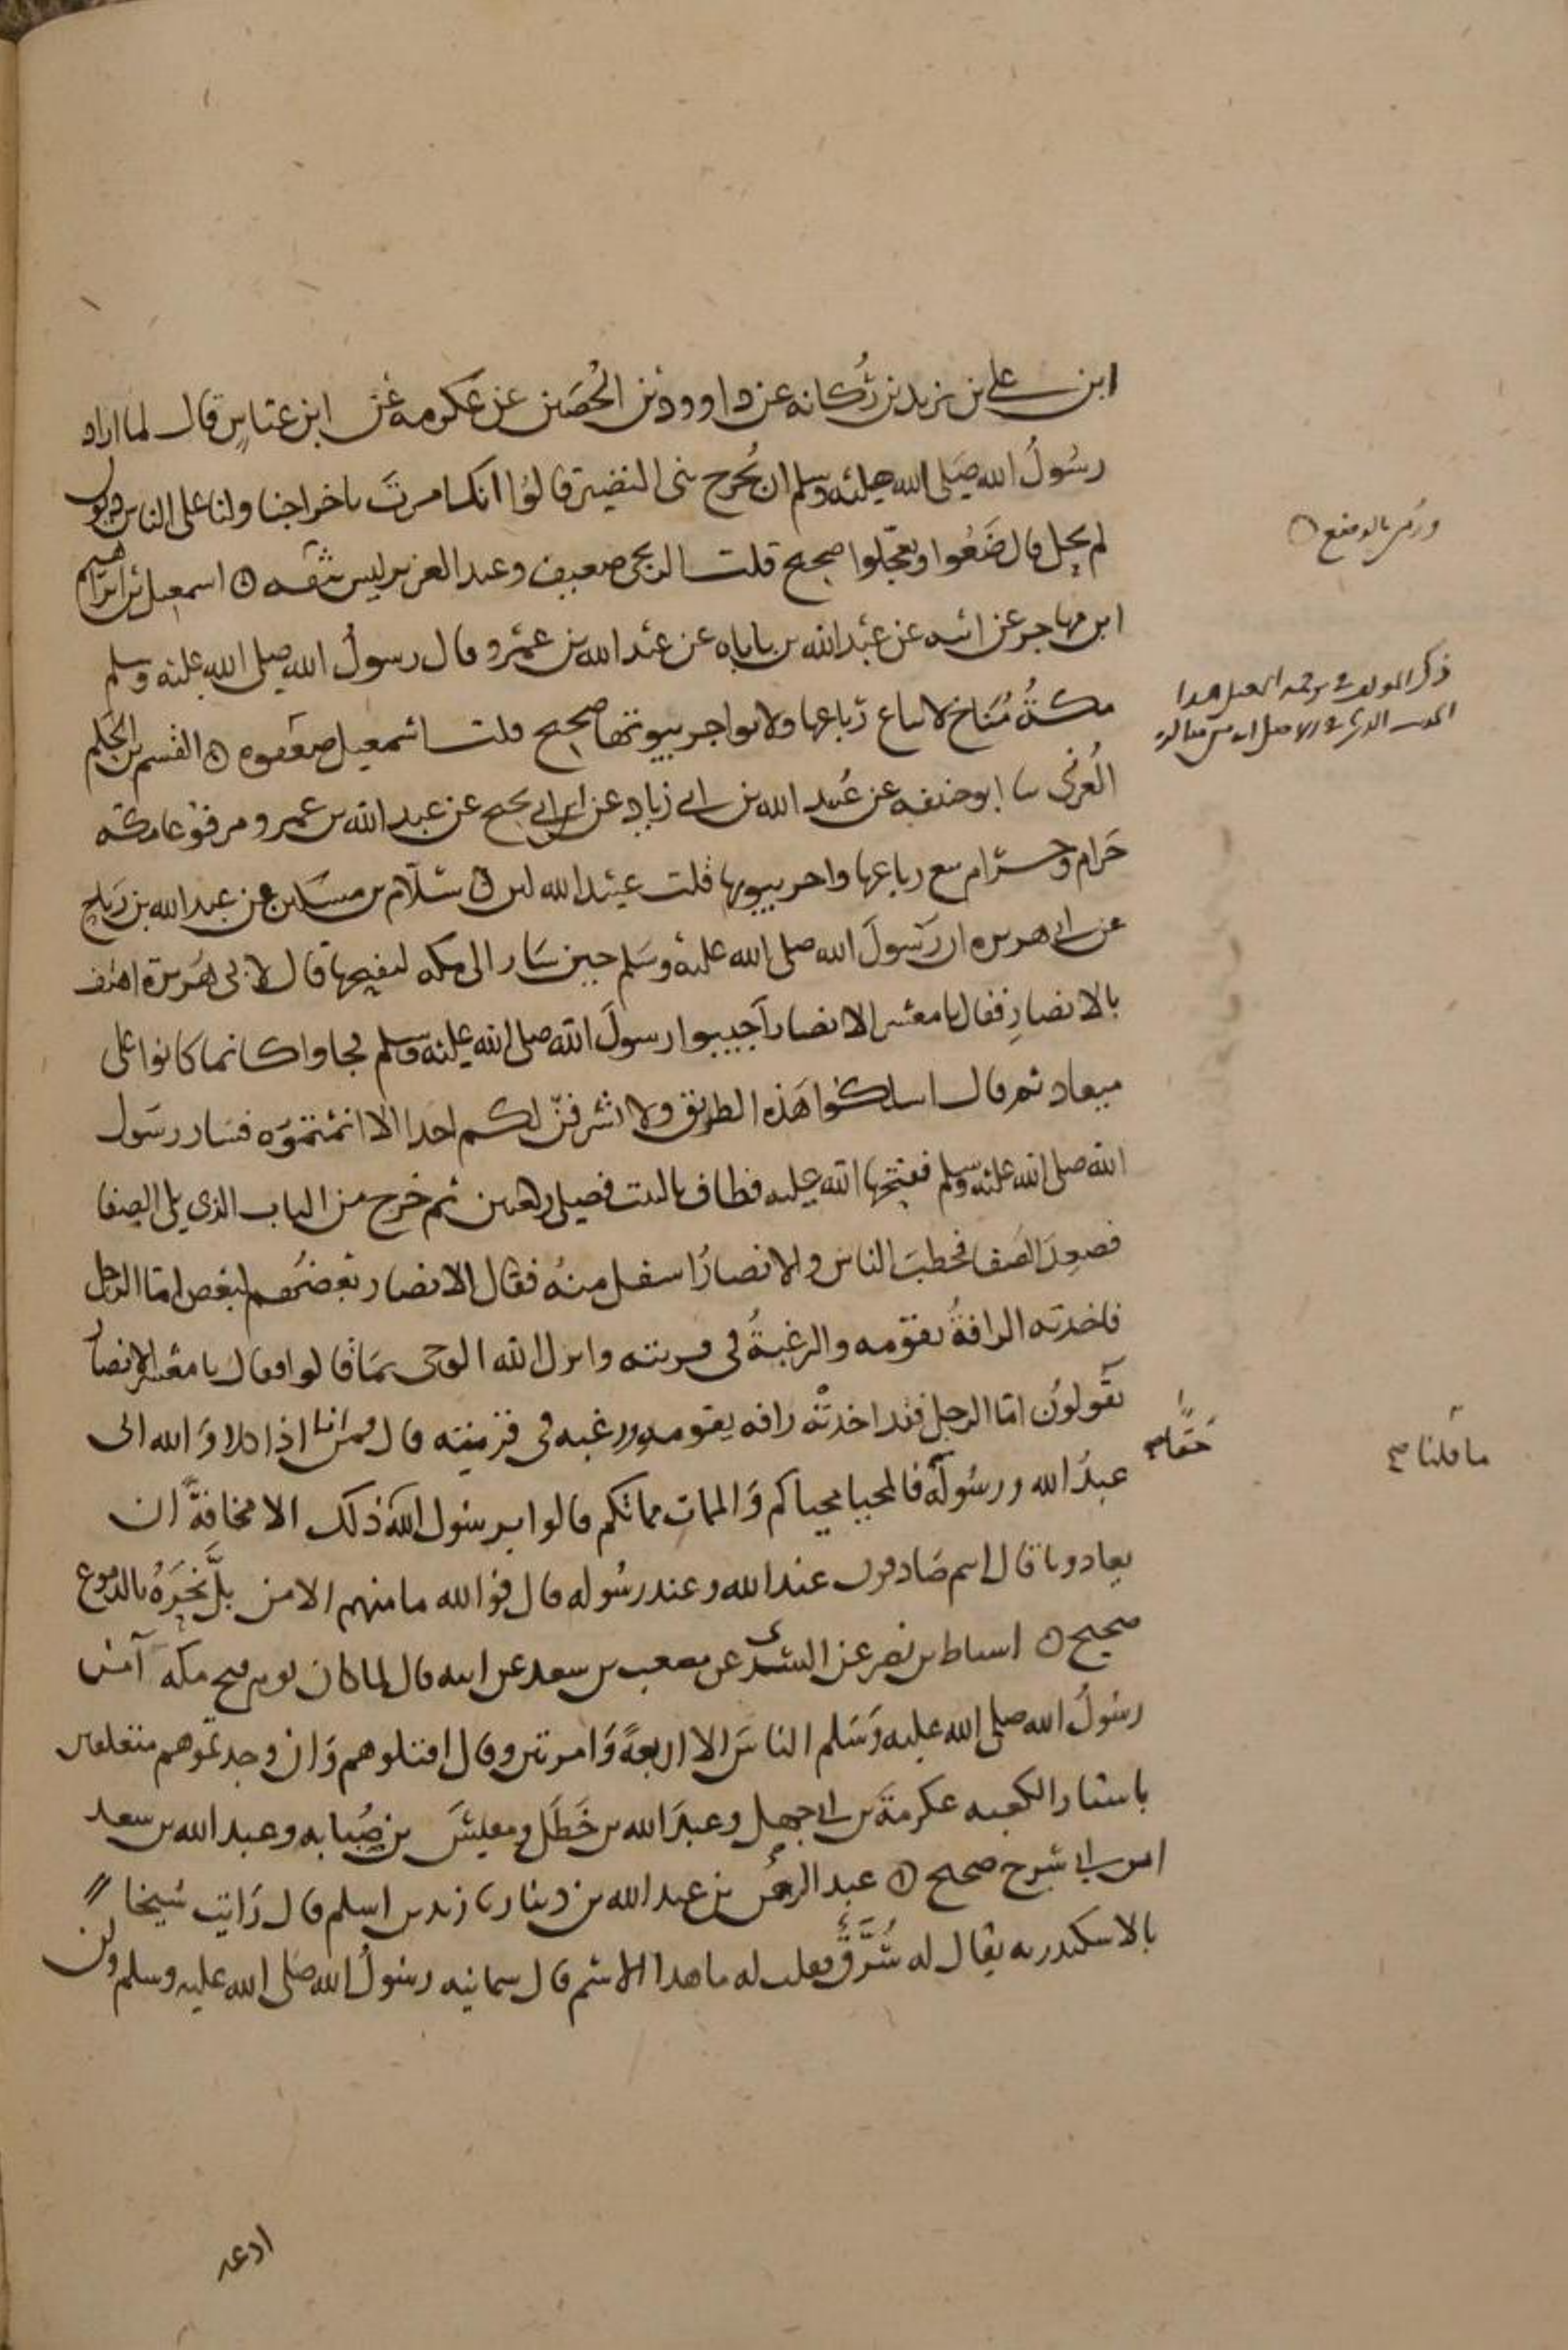 ابن علي بن يزيد بن رُكانه عن داوود بن الحُصَين عن عكرمه عن ابن عباسٍ قال لما اراد
رسُولُ الله صَلى الله عليه وسلم ان يُخرج بنى النضير قالوُا انك امرتَ باخراجنا ولنا على الناس ديون
لم تحل قال ضَعُوا وتعجّلوا صحيح قلت الزنجى ضعيف وعبد العزيز ليس بثقه ۞ اسمعيل بن ابراهيم
ابن مهاجر عن ابيه عن عبد الله بن باباه عن عبد الله بن عمرو قال رسولُ الله صلى الله عليه وسلم
مكةُ مُنَاخ لا تباع رباعها ولا تواجر بيوتها صحيح قلت اسمعيل ضعفوه ۞ القسم بن الحكم
العُرنى ثنا ابو حنيفه عن عُبيد الله بن ابى زياد عن ابن ابى نجيح عن عبد الله بن عمرو مرفوعا مكه
حَرام وحرام بيع رباعها واجر بيوتها قلت عبيد الله لين ۞ سلّام بن مسكين عن عبد الله بن رَبَاح
عن ابى هريره ان رَسولَ الله صلى الله عليه وسَلم حين سَار الى مكه ليفتحها قال لابى هُريرة اهتف
بالانصارِ فقال يا معشر الانصار آجيبوا رسولَ الله صلى الله عليه وسلم فجاوا كانما كانوا على
ميعاد ثم قال اسلكوا هَذه الطريق ولا يشرفنّ لكم احَد الا انمتموَه فسَار رسَول
الله صلى الله عليه وسلم ففتحها الله عليه فطاف بالبيت فصلى ركعتين ثم خرج من الباب الذى يلى الصفا
فصعِدَ الصَفا فخطبَ الناسَ والانصارُ اسفل منهُ فقال الانصار بعضُهم لبعض امّا الرجل
فاخذته الرافةُ بقومه والرغبةُ فى قريته وانزل الله الوحى بمَا قالوا فقال يا معشر الانصار
تقَولونُ امّا الرجل فقد اخذتْه رافه بقومه ورغبه فى قريته قال فمن انا اذا كلا وَالله انى
عبدُ الله ورسُولهُ حَقًّا صح فالمحيا محياكم وَالممات مماتكم قالوا يرسُول الله ما قلنا صح ذلك الا مخافةً ان
تعادونا قال انتم صَادقون عند الله وعند رسُوله قال فوالله ما منهم الا من بلَّ نَحرَهُ بالدموع
صحيح ۞ اسباط بن نصر عن السُّدى عن مصعب بن سعد عن ابيه قال لما كان يوم فتح مكه آمن
رسُولُ الله صلى الله عليه وَسَلم الناسَ الا اربعةً وَامرتين وقال اقتلوهم وَان وجدتموهم متعلقين
باستار الكعبه عكرمةَ بن ابى جهل وعبدَ الله بن خَطَل ومقيسَ بن صُبَابه وعبد الله بن سعد
ابن ابى سَرح صحيح ۞ عبد الرحمن بن عبد الله بن دينار ثنا زيد بن اسلم قال رَايت شيخا
بالاسكندريه يقال له سُرَّقٌ فقلت له ما هذا الاسم قال سمانيه رسُولُ الله صلى الله عليه وسلم ولن
ادعه